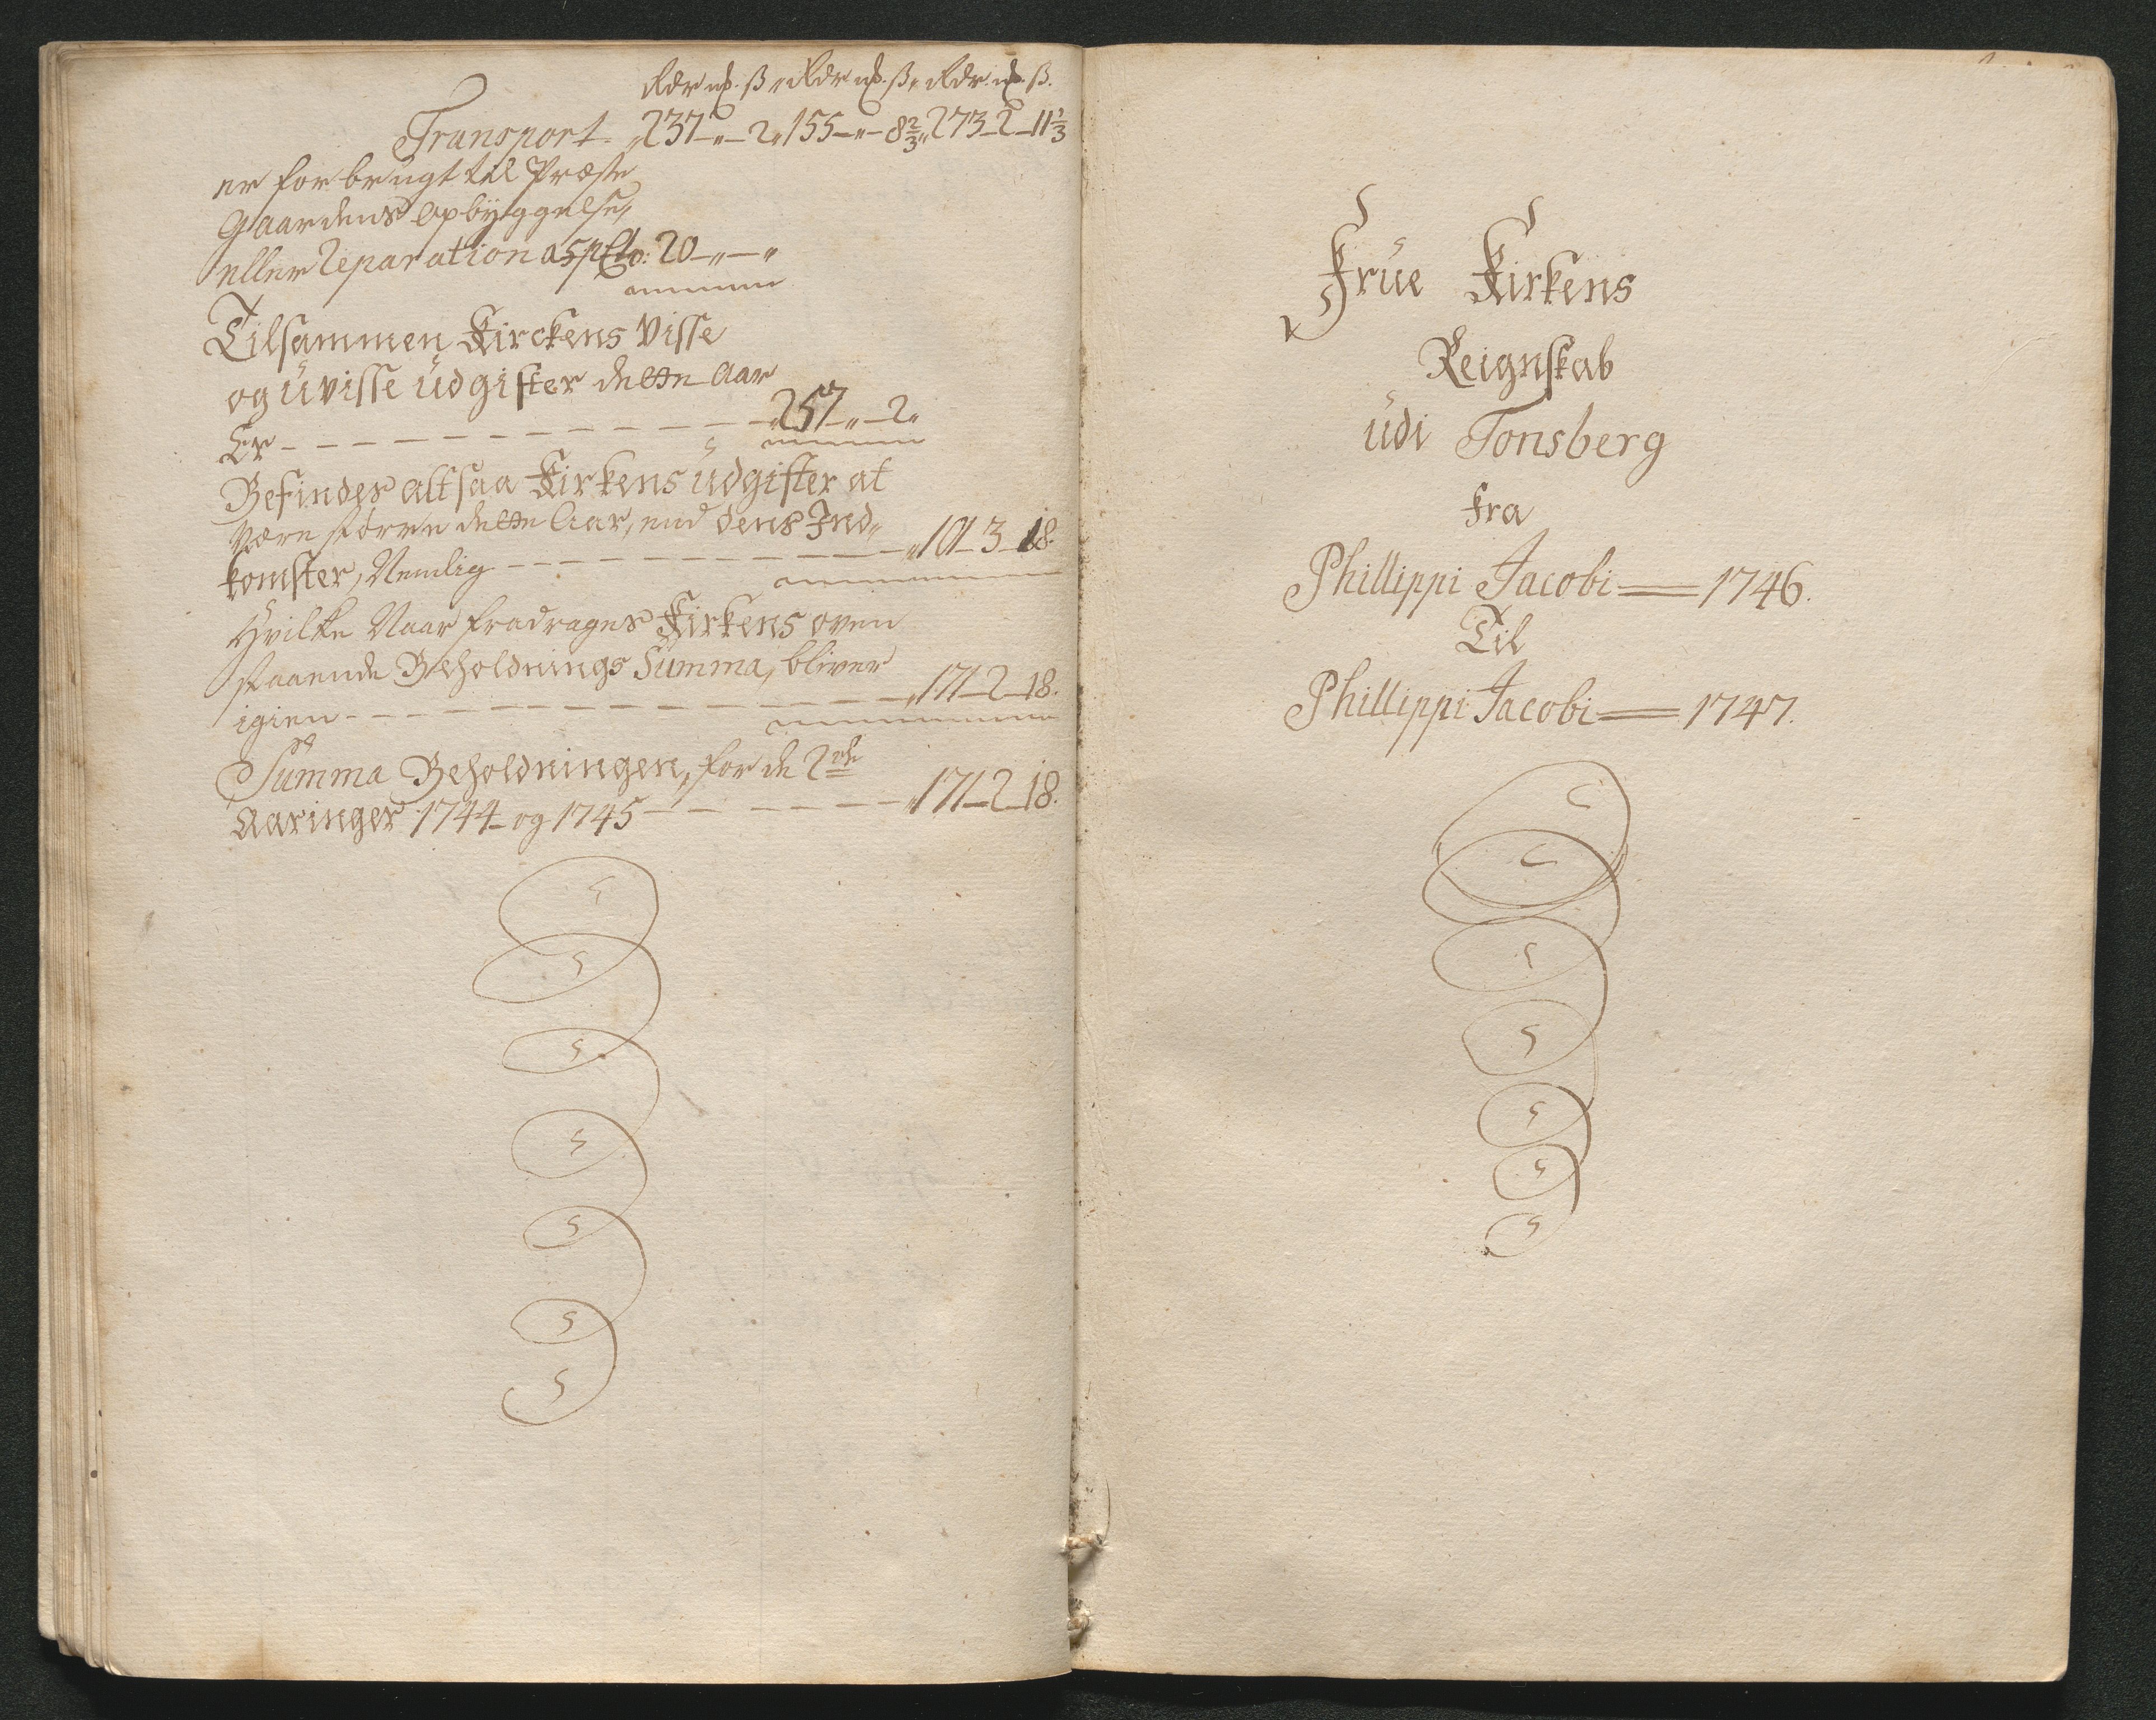 Rdr mk. ß. Rdr mk. ß. Rdr. mk ß.
Transport. 237 - " - 2 " 155 - " - 8 2/3 " 273 - 2 - 11 1/3
er forbrugt til Præste
Gaardens Opbyggelse,
eller Reparation a 5 pCto: 20 - " - "
Tilsammen Kirckens Visse
og üvisse üdgifter dette Aar
Er - - - - - - - - - - 257 " - 2 "
Befindes altsaa Kirkens üdgifter at
være større dette Aar, end dens Ind-
komster, Nemlig - - - - - - - - - " 101 - 3 - 18.
Hvilke Naar fradrages Kirkens oven
staaende Beholdnings Summa, bliver
igien - - - - - - - - - - - - - " 171 - 2 - 18.
Summa Beholdningen, for de 2de
Aaringer 1744 og 1745 - - - - - - " 171 - 2 - 18.
Früe Kirkens
Reignskab
üdi Tonsberg
Fra
Phillippi Jacobi = 1746.
Til
Phillippi Jacobi = 1747.